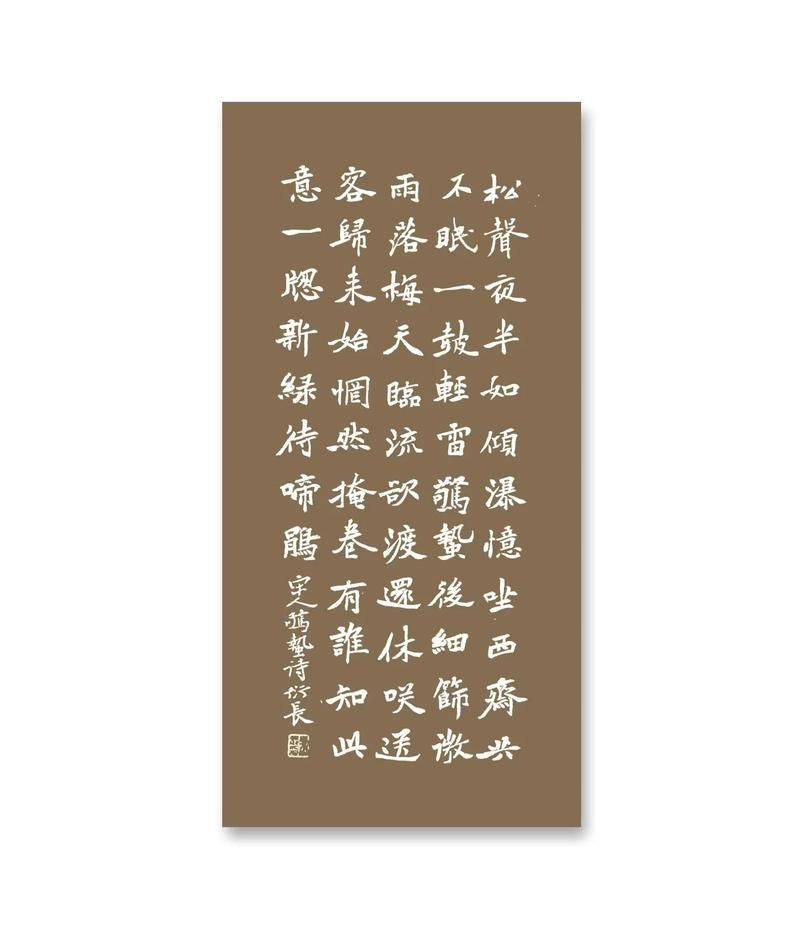 松聲夜半如傾瀑憶坐西齋共
不眠一鼓輕雷驚蟄後細篩微
雨落梅天臨流欲渡還休咲送
客歸来始惘然掩卷有誰知此
意一牎新緑待啼鵑
宋人驚蟄诗衍長